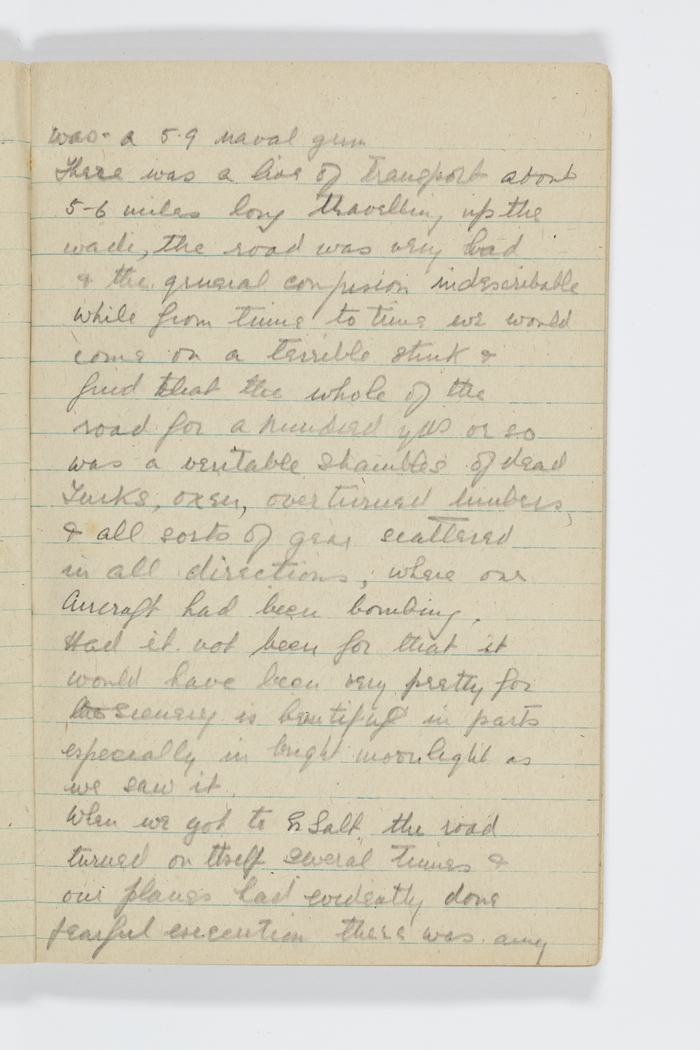 was a 5.9 naval gun
There was a live of transport about
5-6 miles long travelling up the
wadi, the road was very bad
& the general confusion indescribable
while from time to time we would
come on a terrible stink &
find that the whole of the
road for a hundred yds or so
was a veritable shambles of dead
Turks, oxen, overturned limbers,
& all sorts of gear scattered
in all directions, where our
Aircraft had been bombing.
Had it not been for that it
would have been very pretty for
the scenery is beautiful in parts
especially in bright moonlight as
we saw it.
When we got to Es Salt the road
turned on itself several times &
our planes had evidently done
fearful execution there was any